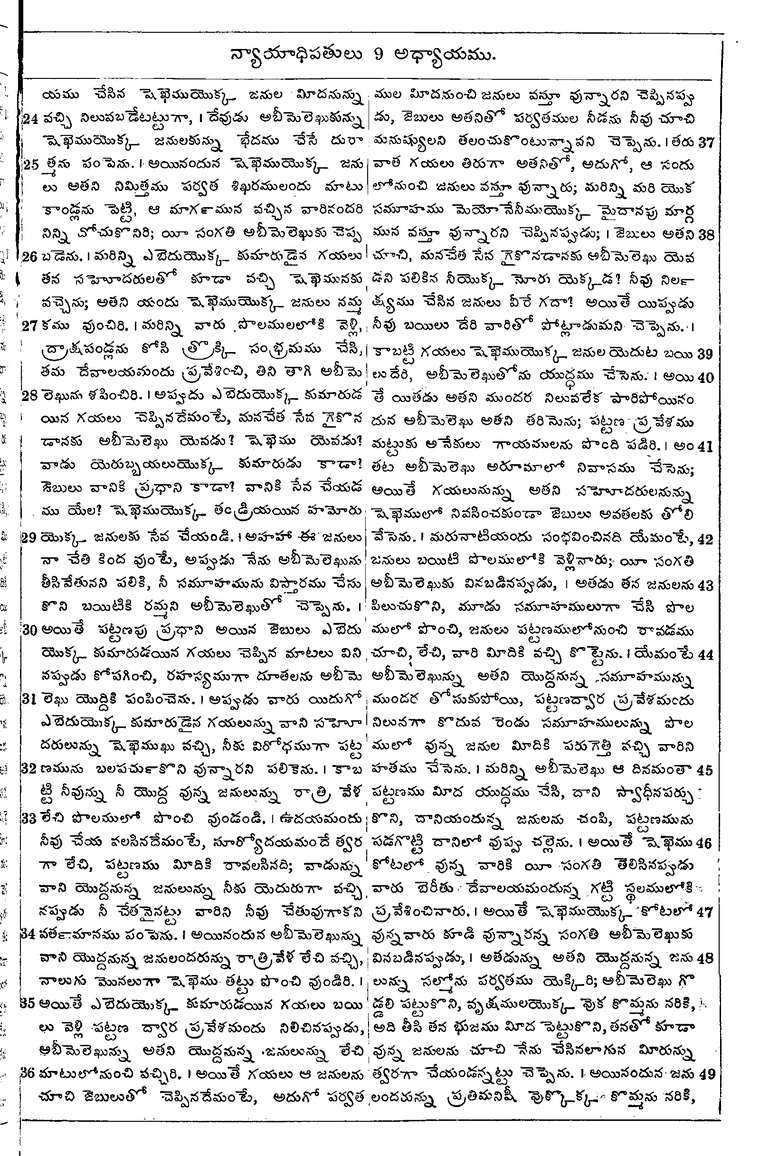 న్యాయాధిపతులు 9 అధ్యాయము.
యము చేసిన షెఖెముయొక్క జనుల మీదనున్ను
24 వచ్చి నిలువబడేటట్టుగా, । దేవుడు అబీమెలెఖుకున్ను
షెఖెముయొక్క జనులకున్ను భేదము చేసే దురా
25 త్మను పంపెను. । అయినందున షెఖెముయొక్క జను
లు అతని నిమిత్తము పర్వత శిఖరములందు మాటు
కాండ్లను పెట్టి, ఆ మార్గమున వచ్చిన వారినందరి
నిన్ని దోచుకొనిరి; యీ సంగతి అబీమెలెఖుకు చెప్ప
26 బడెను. । మరిన్ని ఎబెదుయొక్క కుమారుడైన గయలు
తన సహోదరులతో కూడా వచ్చి షెఖెమునకు
వచ్చెను; అతని యందు షెఖెముయొక్క జనులు నమ్మ
27 కము వుంచిరి. । మరిన్ని వారు పొలములలోకి వెళ్లి,
ద్రాక్షపండ్లను కోసి త్రొక్కి సంభ్రమము చేసి,
తమ దేవాలయమందు ప్రవేశించి, తిని తాగి అబీమె
28 లెఖును శపించిరి. । అప్పుడు ఎబెదుయొక్క కుమారుడ
యిన గయలు చెప్పినదేమంటే, మనచేత సేవ గైకొన
డానకు అబీమెలెఖు యెవడు? షెఖెము యెవడు?
వాడు యెరుబ్బయలుయొక్క కుమారుడు కాడా?
జెబులు వానికి ప్రధాని కాడా? వానికి సేవ చేయడ
ము యేల? షెఖెముయొక్క తండ్రియయిన హమోరు
29 యొక్క జనులకు సేవ చేయండి. । అహహా ఈ జనులు
నా చేతి కింద వుంటే, అప్పుడు నేను అబీమెలెఖును
తీసివేతునని పలికి, నీ సమూహమును విస్తారము చేసు
కొని బయిటికి రమ్మని అబీమెలెఖుతో చెప్పెను. ।
30 అయితే పట్టణపు ప్రధాని అయిన జెబులు ఎబెదు
యొక్క కుమారుడయిన గయలు చెప్పిన మాటలు విని
నప్పుడు కోపగించి, రహస్యముగా దూతలను అబీమె
31 లెఖు యొద్దికి పంపించెను. । అప్పుడు వారు యిదుగో
ఎబెదుయొక్క కుమారుడైన గయలున్ను వాని సహో
దరులున్ను షెఖెముఖు వచ్చి, నీకు విరోధముగా పట్ట
32 ణమును బలపచుకొని వున్నారని పలికెను. । కాబ
ట్టి నీవున్ను నీ యొద్ద వున్న జనులున్ను రాత్రి వేళ
33 లేచి పొలములో పొంచి వుండండి. । ఉదయమందు
నీవు చేయ వలసినదేమంటే, సూర్యోదయమందే త్వర
గా లేచి, పట్టణము మీదికి రావలసినది; వాడున్ను
వాని యొద్దనున్న జనులున్ను నీకు యెదురుగా వచ్చి
నప్పుడు నీ చేతనైనట్టు వారిని నీవు చేతువుగాకని
34 వర్తమానము పంపెను. । అయినందున అబీమెలెఖున్ను
వాని యొద్దనున్న జనులందరున్ను రాత్రివేళ లేచి వచ్చి,
నాలుగు మొనలుగా షెఖెము తట్టు పొంచి వుండిరి. ।
35 అయితే ఎబెదుయొక్క కుమారుడయిన గయలు బయి
లు వెళ్లి పట్టణ ద్వార ప్రవేశమందు నిలిచినప్పుడు,
అబీమెలెఖున్ను అతని యొద్దనున్న జనులున్ను లేచి
36 మాటులోనుంచి వచ్చిరి. । అయితే గయలు ఆ జనులను
చూచి జెబులుతో చెప్పినదేమంటే, అదుగో పర్వత
ముల మీదనుంచి జనులు వస్తూ వున్నారని చెప్పినప్పు
డు, జెబులు అతనితో పర్వతముల నీడను నీవు చూచి
మనుష్యులని తలంచుకొంటున్నావని చెప్పెను. । తరు 37
వాత గయలు తిరుగా అతనితో, అదుగో, ఆ సందు
లోనుంచి జనులు వస్తూ వున్నారు; మరిన్ని మరి యొక
సమూహము మెయోనేనీముయొక్క మైదానపు మార్గ
మున వస్తూ వున్నారని చెప్పినప్పుడు; । జెబులు అతని 38
చూచి, మనచేత సేవ గైకొనడానకు అబీమెలెఖు యెవ
డని పలికిన నీయొక్క నోరు యెక్కడ? నీవు నిర్ల
క్ష్యము చేసిన జనులు వీరే గదా? అయితే యిప్పుడు
నీవు బయిలు దేరి వారితో పోట్లాడుమని చెప్పెను. ।
కాబట్టి గయలు షెఖెముయొక్క జనుల యెదుట బయి 39
లుదేరి, అబీమెలెఖుతోను యుద్ధము చేసెను. । అయి 40
తే యితడు అతని ముందర నిలువలేక పారిపోయినం
దున అబీమెలెఖు అతని తరిమెను; పట్టణ ప్రవేశము
మట్టుకు అనేకులు గాయములను పొంది పడిరి. । అం 41
తట అబీమెలెఖు అరూమాలో నివాసము చేసెను;
అయితే గయలునున్ను అతని సహోదరులనున్ను
షెఖెములో నివసించకుండా జెబులు అవతలకు తోలి
వేసెను. । మరునాటియందు సంభవించినది యేమంటే, 42
జనులు బయిటి పొలములోకి వెళ్లినారు; యీ సంగతి
అబీమెలెఖుకు వినబడినప్పుడు, । అతడు తన జనులను 43
పిలుచుకొని, మూడు సమూహములుగా చేసి పొల
ములో పొంచి, జనులు పట్టణములోనుంచి రావడము
చూచి, లేచి, వారి మీదికి వచ్చి కొట్టెను. । యేమంటే 44
అబీమెలెఖున్ను అతని యొద్దనున్న సమూహమున్ను
ముందర తోసుకుపోయి, పట్టణద్వార ప్రవేశమందు
నిలువగా కొదువ రెండు సమూహములున్ను పొల
ములో వున్న జనుల మీదికి పరుగెత్తి వచ్చి వారిని
హతము చేసెను. । మరిన్ని అబీమెలెఖు ఆ దినమంతా 45
పట్టణము మీద యుద్ధము చేసి, దాని స్వాధీనపర్చు
కొని, దానియందున్న జనులను చంపి, పట్టణమును
పడగొట్టి దానిలో వుప్పు చల్లెను. । అయితే షెఖెము 46
కోటలో వున్న వారికి యీ సంగతి తెలిసినప్పుడు
వారు బెరీతు దేవాలయమందున్న గట్టి స్థలములోకి
ప్రవేశించినారు. । అయితే షెఖెముయొక్క కోటలో 47
వున్నవారు కూడి వున్నారన్న సంగతి అబీమెలెఖుకు
వినబడినప్పుడు, । అతడున్ను అతని యొద్దనున్న జను 48
లున్ను సల్మోను పర్వతము యెక్కిరి; అబీమెలెఖు గొ
డ్డలి పట్టుకొని, వృక్షములయొక్క వుక కొమ్మను నరికి,
అది తీసి తన భుజము మీద పెట్టుకొని, తనతో కూడా
వున్న జనులను చూచి నేను చేసినలాగున మీరున్ను
త్వరగా చేయండన్నట్టు చెప్పెను. । అయినందున జను 49
లందరున్ను ప్రతిమనిషీ వుక్కొక్క కొమ్మను నరికి,